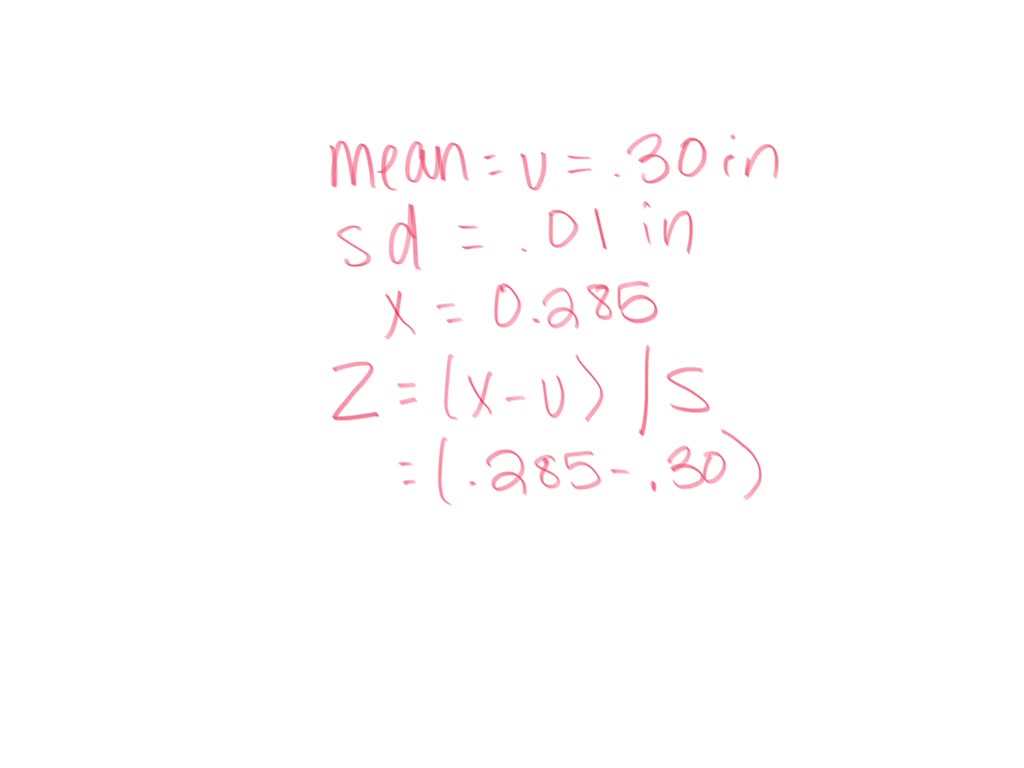 mean = υ = .30 in
sd = .01 in
x = 0.285
Z = (x - υ) / S
= (.285 - .30)